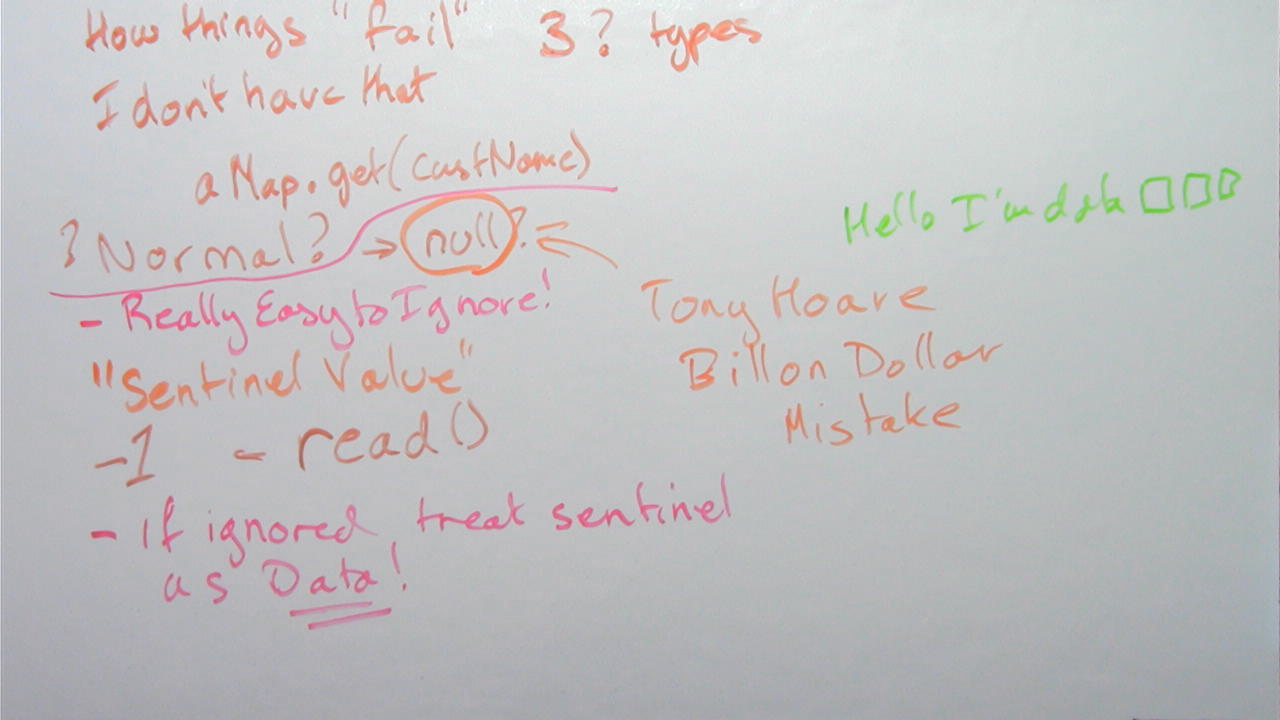 How things "fail" 3? types
I don't have that
a Map.get(custName)
? Normal? → null?
- Really Easy to Ignore!
"Sentinel Value"
-1 - read()
- If ignored, treat sentinel
as Data!
Hello I'm data □□□
Tony Hoare
Billon Dollar
Mistake